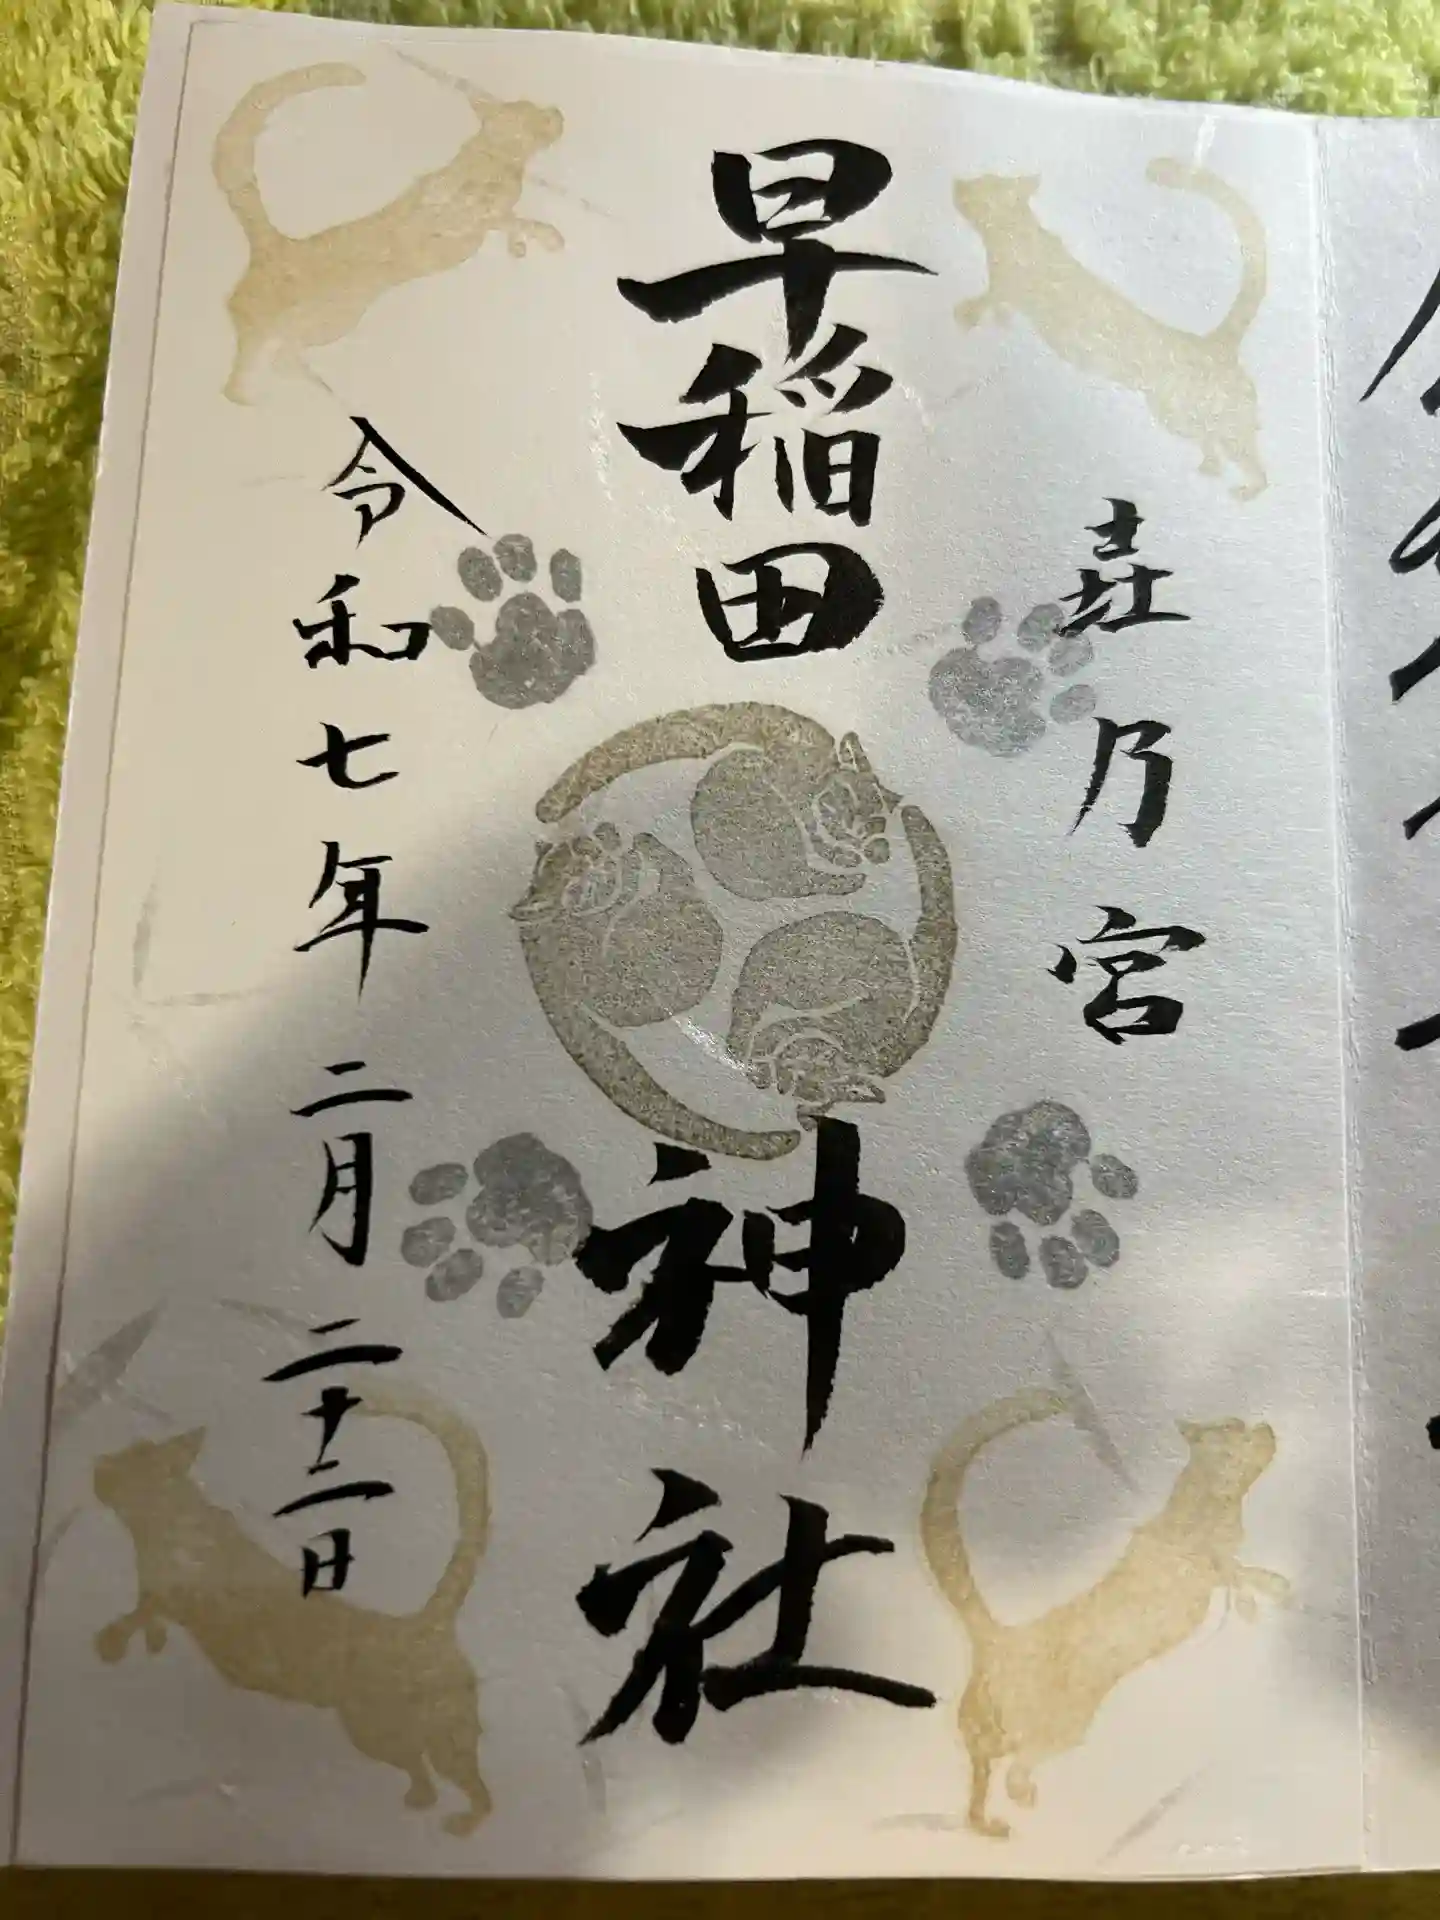 垚乃宮
早稲田神社
令和七年二月二十二日